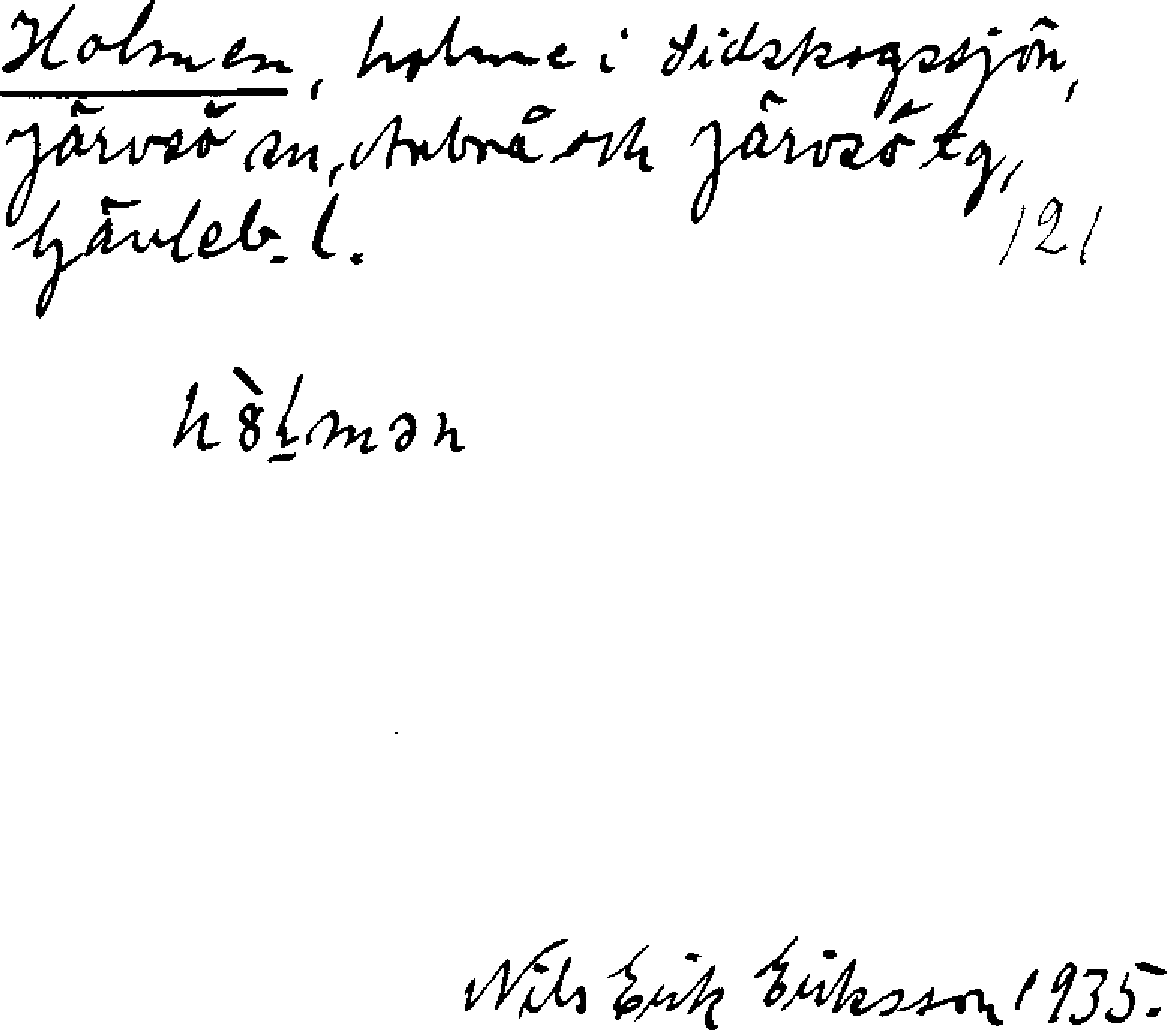 Holmen, holme i Sidskogssjön,
Järvsö sn, Arbrå och Järvsö tg,
Gävleb. l.
121
h8̀ḻmən
Nils Erik Eriksson 1935.